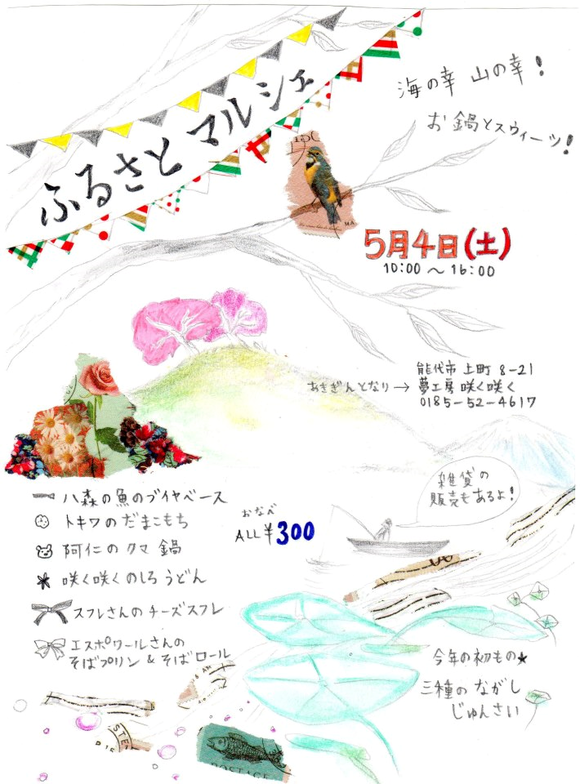 ふるさとマルシェ
海の幸 山の幸!
お鍋とスウィーツ!
5月4日(土)
10:00 ~ 16:00
あきぎんとなり→
能代市 上町 8-21
夢工房 咲く咲く
0185-52-4617
雑貨の
販売もあるよ!
八森の魚のブイヤベース
トキワのだまこもち
阿仁のクマ鍋
咲く咲くのしろうどん
スフレさんのチーズスフレ
エスポワールさんの
そばプリン & そばロール
おなべ
ALL ¥300
今年の初もの★
三種のながし
じゅんさい
POSTAGE